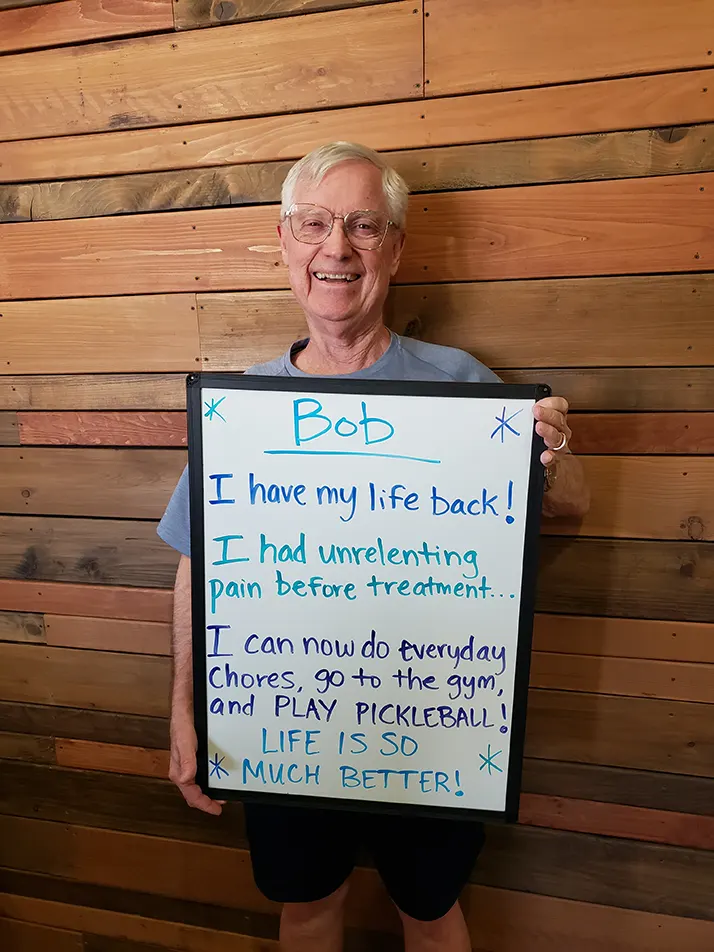 Bob
I have my life back!
I had unrelenting
pain before treatment...
I can now do everyday
chores, go to the gym,
and PLAY PICKLEBALL!
LIFE IS SO
MUCH BETTER!